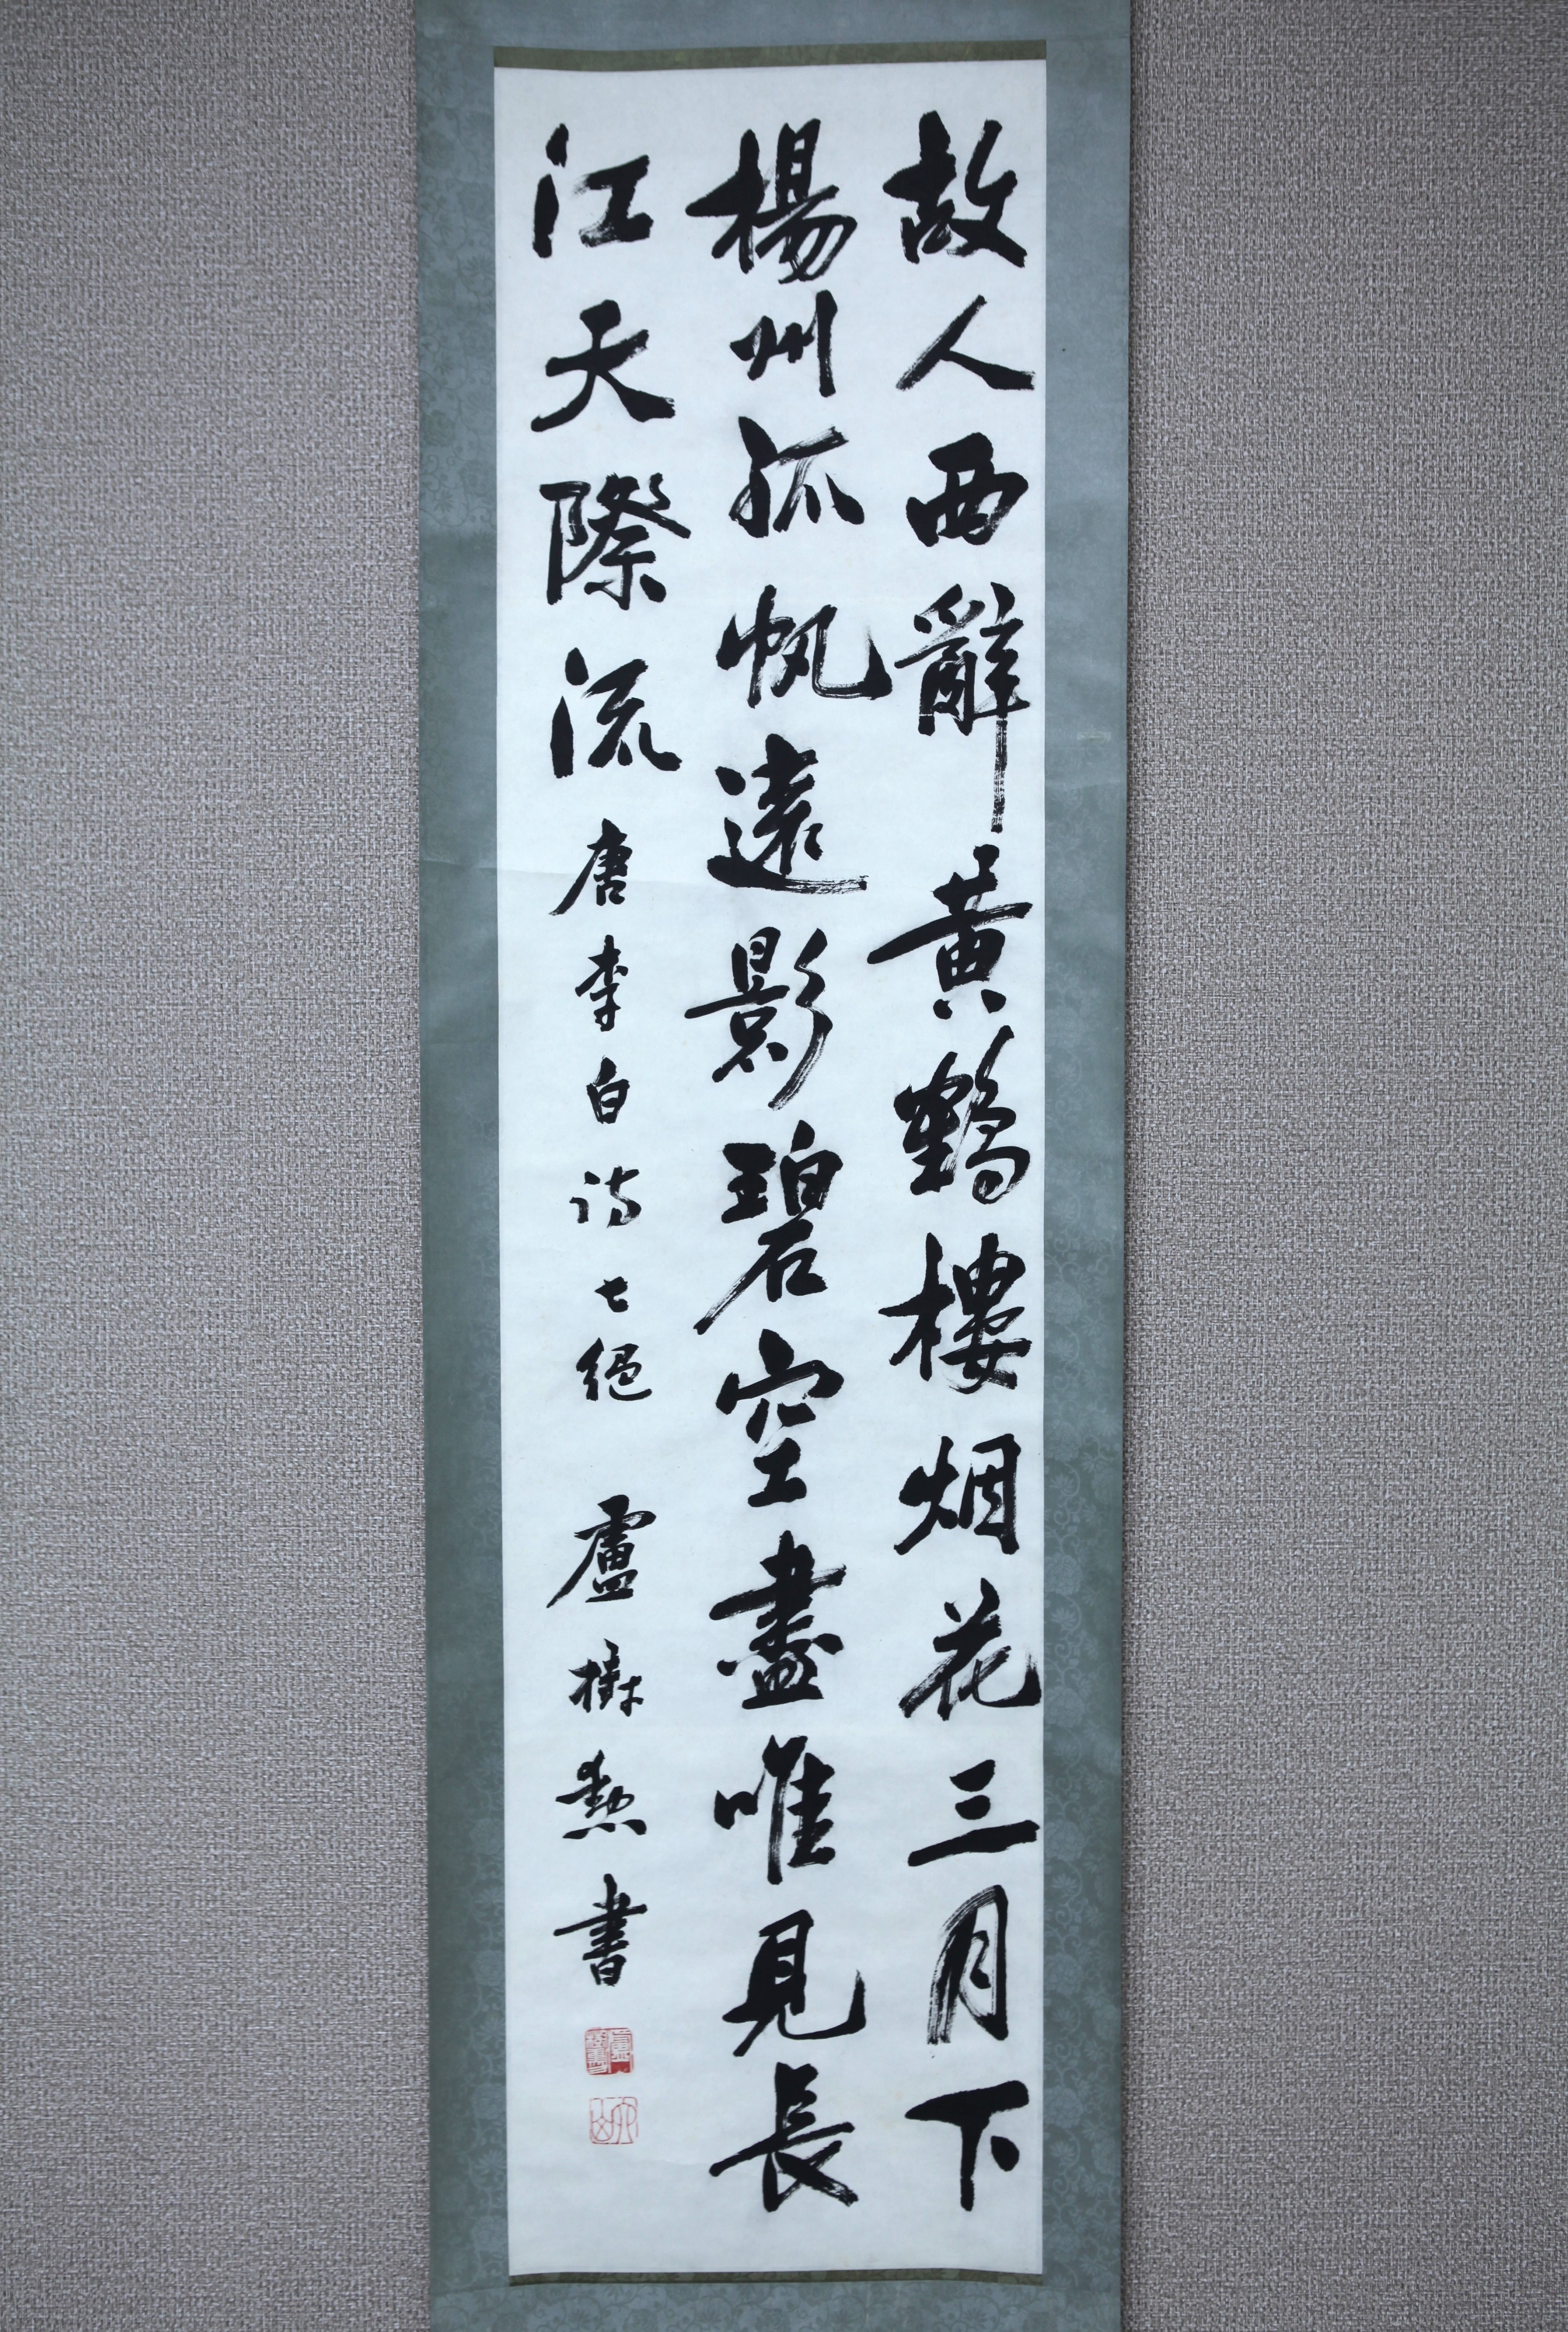 故人西辭黄鶴樓烟花三月下
楊州孤帆遠影碧空盡唯見長
江天際流
唐李白詩七絕
盧樹勲書